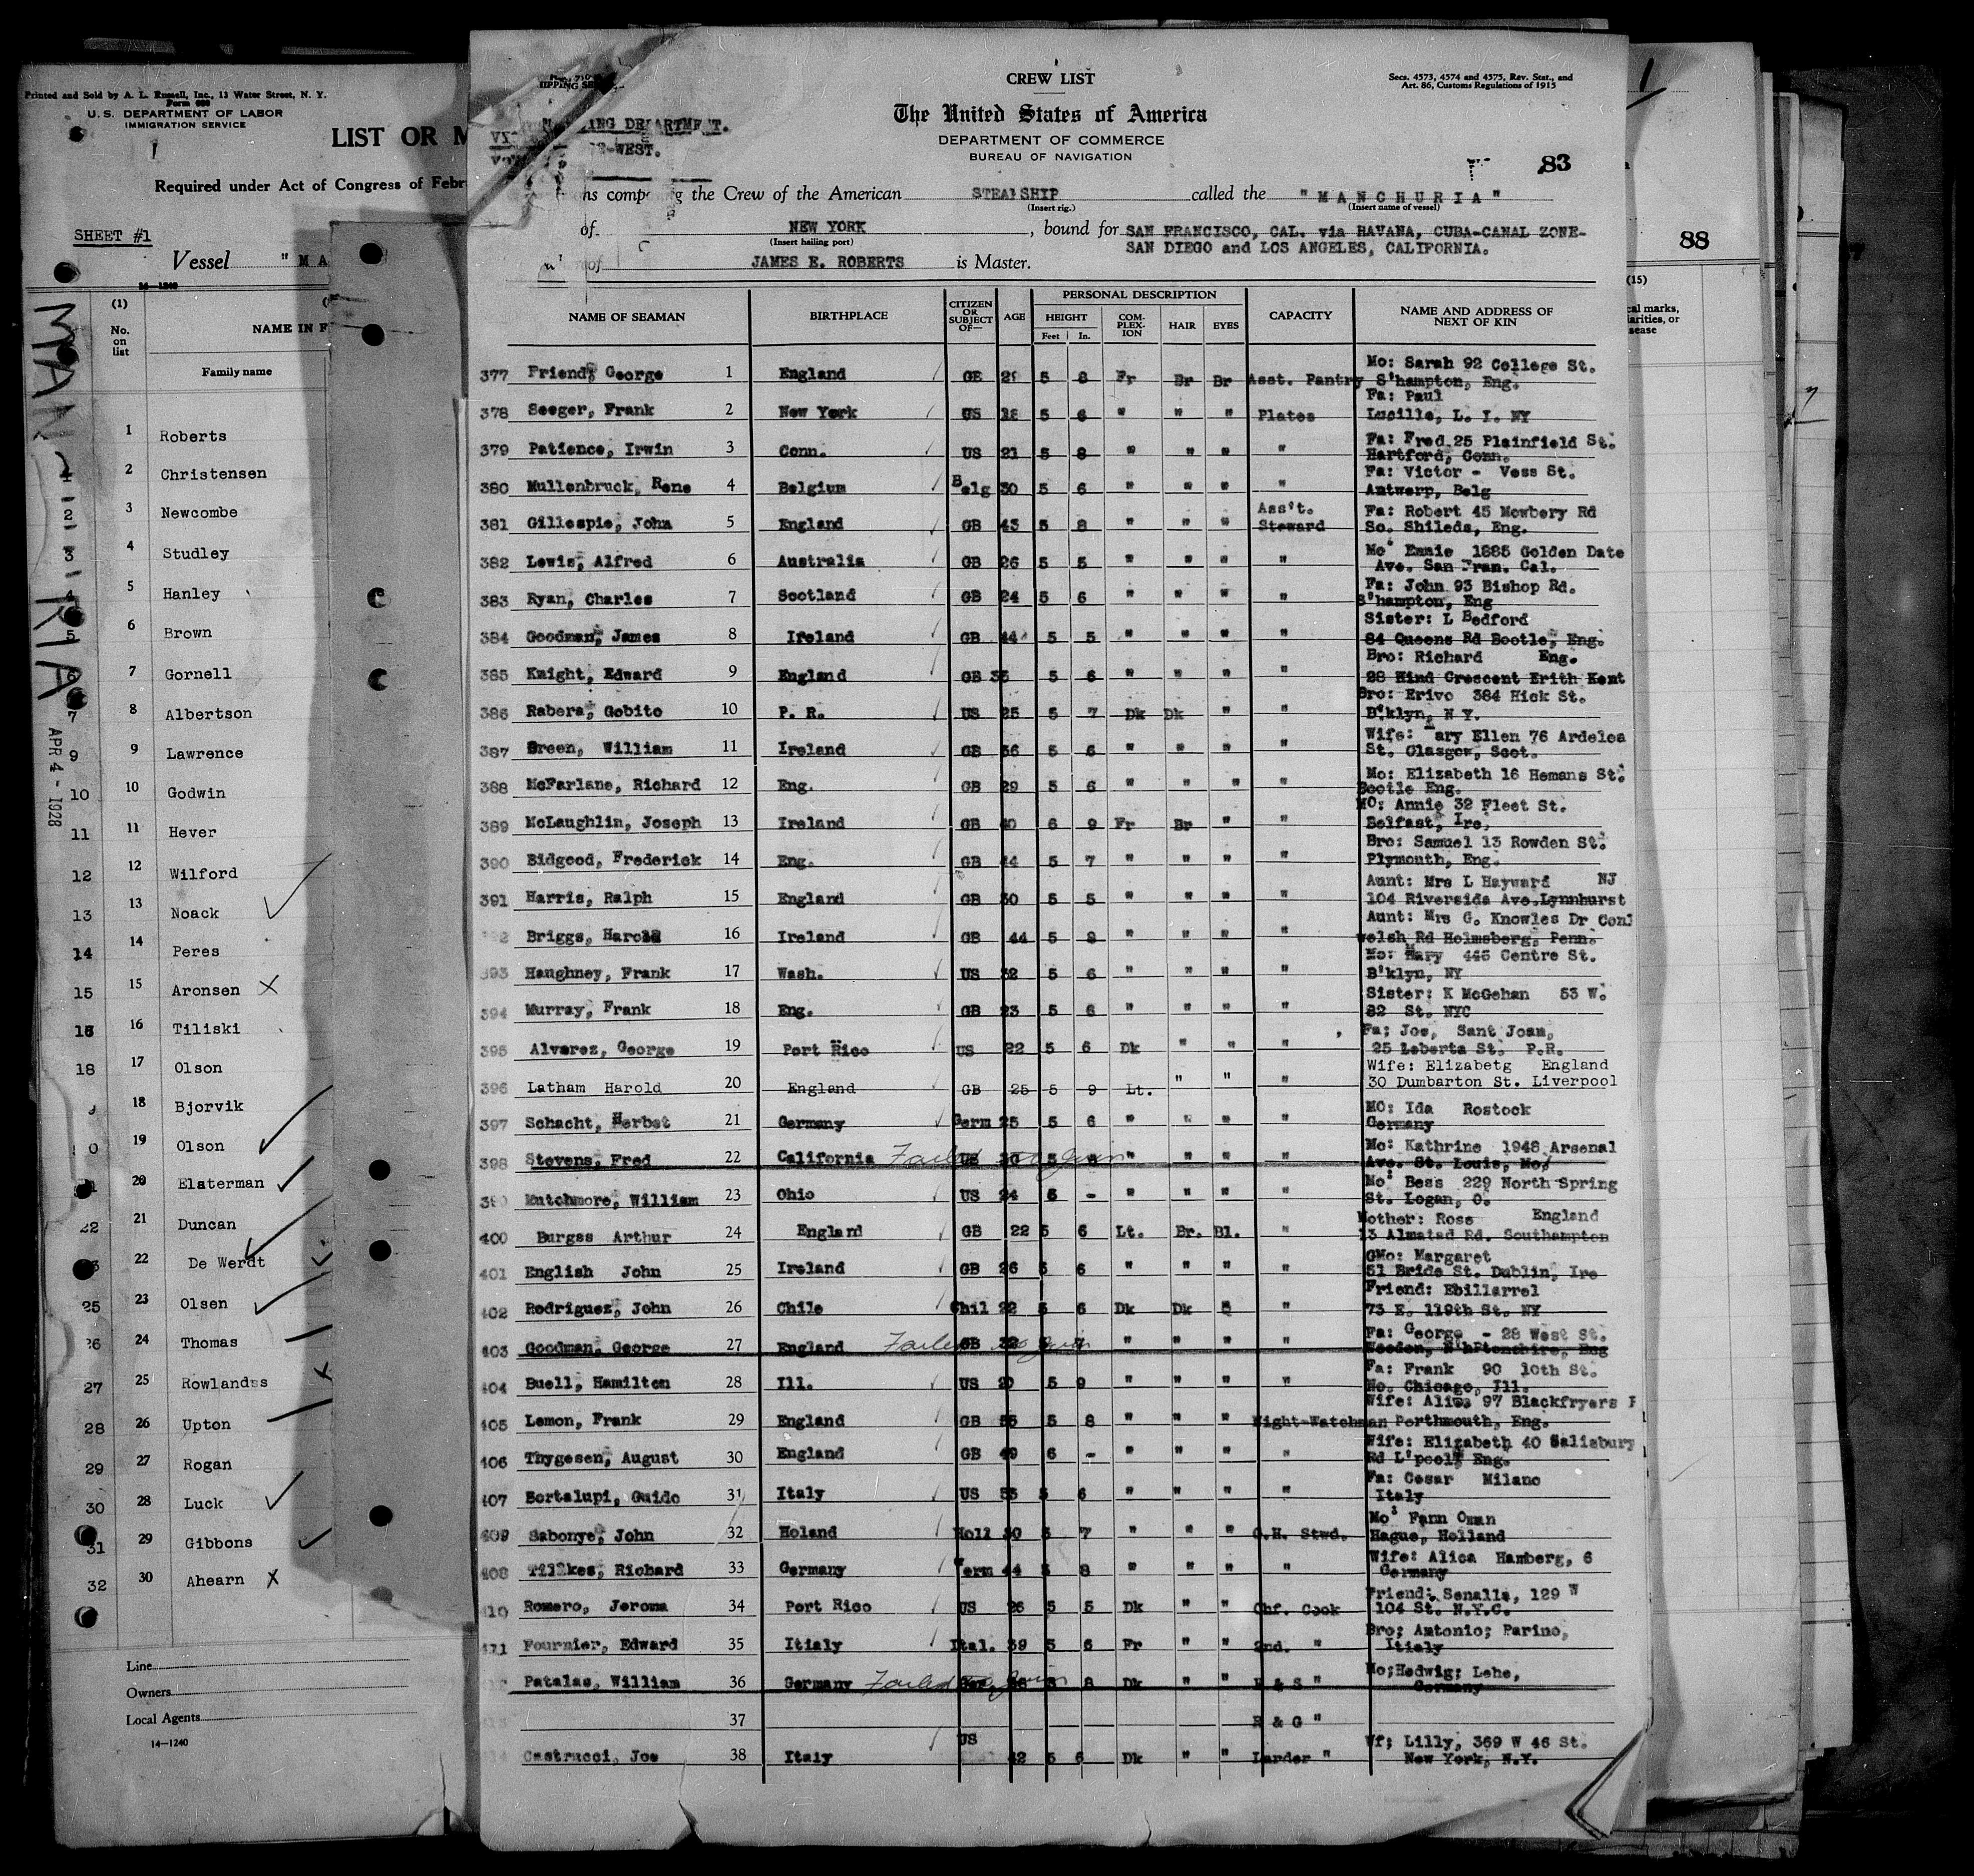 Printed and Sold by A. L. Russell, Inc., 13 Water Street, N. Y.
Form 680
U. S. DEPARTMENT OF LABOR
IMMIGRATION SERVICE
LIST OR M
Required under Act of Congress of Febru
SHEET #1
Vessel " M A
14-1240
(1)
No. on list
NAME IN F
Family name
APR 4 - 1928
1 Roberts
2 Christensen
3 Newcombe
4 Studley
5 Hanley
6 Brown
7 Gornell
8 Albertson
9 Lawrence
10 Godwin
11 Hever
12 Wilford
13 Noack
14 Peres
15 Aronsen X
16 Tiliski
17 Olson
18 Bjorvik
19 Olson
20 Elsterman
21 Duncan
22 De Werdt
23 Olsen
24 Thomas
25 Rowlandss
26 Upton
27 Rogan
28 Luck
29 Gibbons
30 Ahearn X
Line
Owners
Local Agents
14-1240
CREW LIST
Secs. 4573, 4574 and 4575, Rev. Stat., and
Art. 86, Customs Regulations of 1915
The United States of America
DEPARTMENT OF COMMERCE
BUREAU OF NAVIGATION
83
the Crew of the American STEAMSHIP called the "MANCHURIA"
(Insert rig.) (Insert name of vessel)
of NEW YORK, bound for SAN FRANCISCO, CAL. via HAVANA, CUBA-CANAL ZONE-
(Insert hailing port) SAN DIEGO and LOS ANGELES, CALIFORNIA.
of JAMES E. ROBERTS is Master.
NAME OF SEAMAN BIRTHPLACE CITIZEN OR SUBJECT OF— AGE PERSONAL DESCRIPTION CAPACITY NAME AND ADDRESS OF NEXT OF KIN
HEIGHT COM-PLEX-ION HAIR EYES
Feet In.
377 Friend, George 1 England GB 29 5 8 Fr Br Br Asst. Pantry Mo: Sarah 92 College St.
S'hampton, Eng.
378 Seeger, Frank 2 New York US 18 5 6 " " " Plates Fa: Paul
Lucille, L. I. NY
379 Patience, Irwin 3 Conn. US 21 5 8 " " " " Fa: Fred 25 Plainfield St.
Hartford, Conn.
380 Mullenbruck, Rene 4 Belgium Belg 30 5 6 " " " " Fa: Victor - Vess St.
Antwerp, Belg
381 Gillespie, John 5 England GB 43 5 8 " " " Ass't. Steward Fa: Robert 45 Mowbery Rd
So. Shileds, Eng.
382 Lewis, Alfred 6 Australia GB 26 5 5 " " " " Mo: Emmie 1885 Golden Date
Ave. San Fran. Cal.
383 Ryan, Charles 7 Scotland GB 24 5 6 " " " " Fa: John 93 Bishop Rd.
S'hampton, Eng
384 Goodman, James 8 Ireland GB 44 5 5 " " " " Sister: L Bedford
84 Queens Rd Bootle, Eng.
385 Knight, Edward 9 England GB 35 5 6 " " " " Bro: Richard Eng.
28 Hind Crescent Erith Kent
386 Rabera, Gobito 10 P. R. US 25 5 7 Dk Dk " " Bro: Erivo 384 Hick St.
B'klyn, N Y.
387 Breen, William 11 Ireland GB 36 5 6 " " " " Wife: ary Ellen 76 Ardelea
St. Glasgow, Scot.
388 McFarlane, Richard 12 Eng. GB 29 5 6 " " " " Mo: Elizabeth 16 Hemans St.
Bootle Eng.
389 McLaughlin, Joseph 13 Ireland GB 40 6 9 Fr Br " " Mo: Annie 32 Fleet St.
Belfast, Ire,
390 Bidgood, Frederick 14 Eng. GB 44 5 7 " " " " Bro: Samuel 13 Rowden St.
Plymouth, Eng.
391 Harris, Ralph 15 England GB 30 5 5 " " " " Aunt: Mrs L Hayward NJ
104 Riverside Ave. Lynnhurst
392 Briggs, Harold 16 Ireland GB 44 5 8 " " " " Aunt: Mrs G. Knowles Dr Con
Welsh Rd Holmsberg, Penn.
393 Haughney, Frank 17 Wash. US 32 5 6 " " " " Mo: Mary 445 Centre St.
B'klyn, NY
394 Murray, Frank 18 Eng. GB 23 5 6 " " " " Sister: K McGehan 53 W.
82 St. NYC
395 Alvarez, George 19 Port Rico US 22 5 6 Dk " " " Fa; Joe, Sant Joan,
25 Loberta St. P.R.
396 Latham Harold 20 England GB 25 5 9 Lt. " " " Wife: Elizabetg England
30 Dumbarton St. Liverpool
397 Schacht, Herbst 21 Germany Germ 25 5 6 " " " " MO: Ida Rostock
Germany
398 Stevens, Fred 22 California Failed to join US 30 5 8 " " " " Mo: Kathrine 1948 Arsenal
Ave. St. Louis, Mo,
399 Mutchmore, William 23 Ohio US 24 6 - " " " " Mo: Bess 229 North Spring
St. Logan, O.
400 Burgss Arthur 24 England GB 22 5 6 Lt. Br. Bl. " Mother: Rose England
13 Almatad Rd. Southampton
401 English John 25 Ireland GB 26 5 6 " " " " GMo: Margaret
51 Bride St. Dublin, Ire
402 Rodriguez, John 26 Chile Chil 22 5 6 Dk Dk " " Friend: Ebillarrel
73 E. 119th St. NY
403 Goodman, George 27 England Failed to join GB 32 5 7 " " " " Fa: George - 28 West St.
Weedon, N'hPtonshire, Eng
404 Buell, Hamilton 28 Ill. US 20 5 9 " " " " Fa: Frank 90 10th St.
No. Chicago, Ill.
405 Lemon, Frank 29 England GB 55 5 8 " " " Night-Watchman Wife: Alice 97 Blackfryers R
Porthmouth, Eng.
406 Thygesen, August 30 England GB 49 6 - " " " " Wife: Elizabeth 40 Salisbury
Rd L'pool Eng.
407 Bortalupi, Guido 31 Italy US 53 5 6 " " " " Fa: Cesar Milano
Italy
409 Sabonye, John 32 Holand Holl 30 5 7 " " " G.H. Stwd. Mo: Fann Oman
Hague, Holland
408 Tilkes, Richard 33 Germany Germ 44 5 8 " " " " Wife: Alica Hamberg, 6
Germany
410 Romero, Jeroma 34 Port Rico US 26 5 5 Dk " " Chf. Cook Friend: Senalls, 129 W
104 St. N.Y.C.
411 Fournier, Edward 35 Itialy Ital. 39 5 6 Fr " " 2nd. " Bro; Antonio; Parino,
Itialy
Patalas, William 36 Germany Failed to join Ger 36 5 8 Dk " " R & S " Mo;Hedwig; Lehe,
Germany
37 R & G "
Castrucci, Joe 38 Italy US 42 5 6 Dk " " Larder " Wf; Lilly, 369 W 46 St.
New York, N.Y.
88
(15)
cal marks,
larities, or
sease